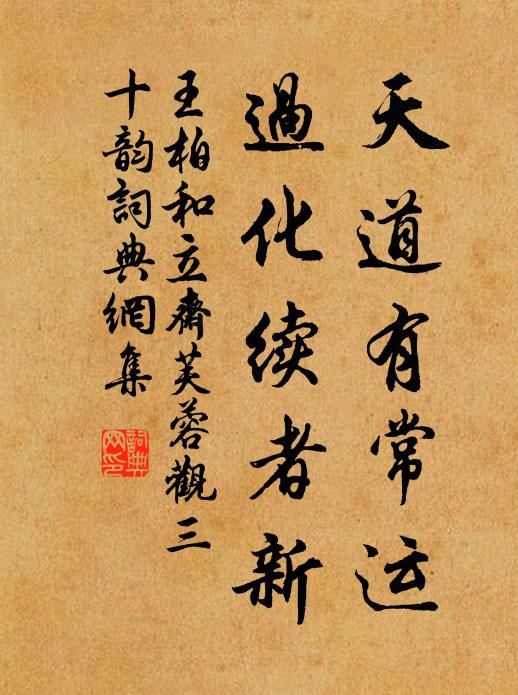 天道有常运
過化续者新
王柏和立齋芙蓉觀三
十韵詞典網集
詞典网印